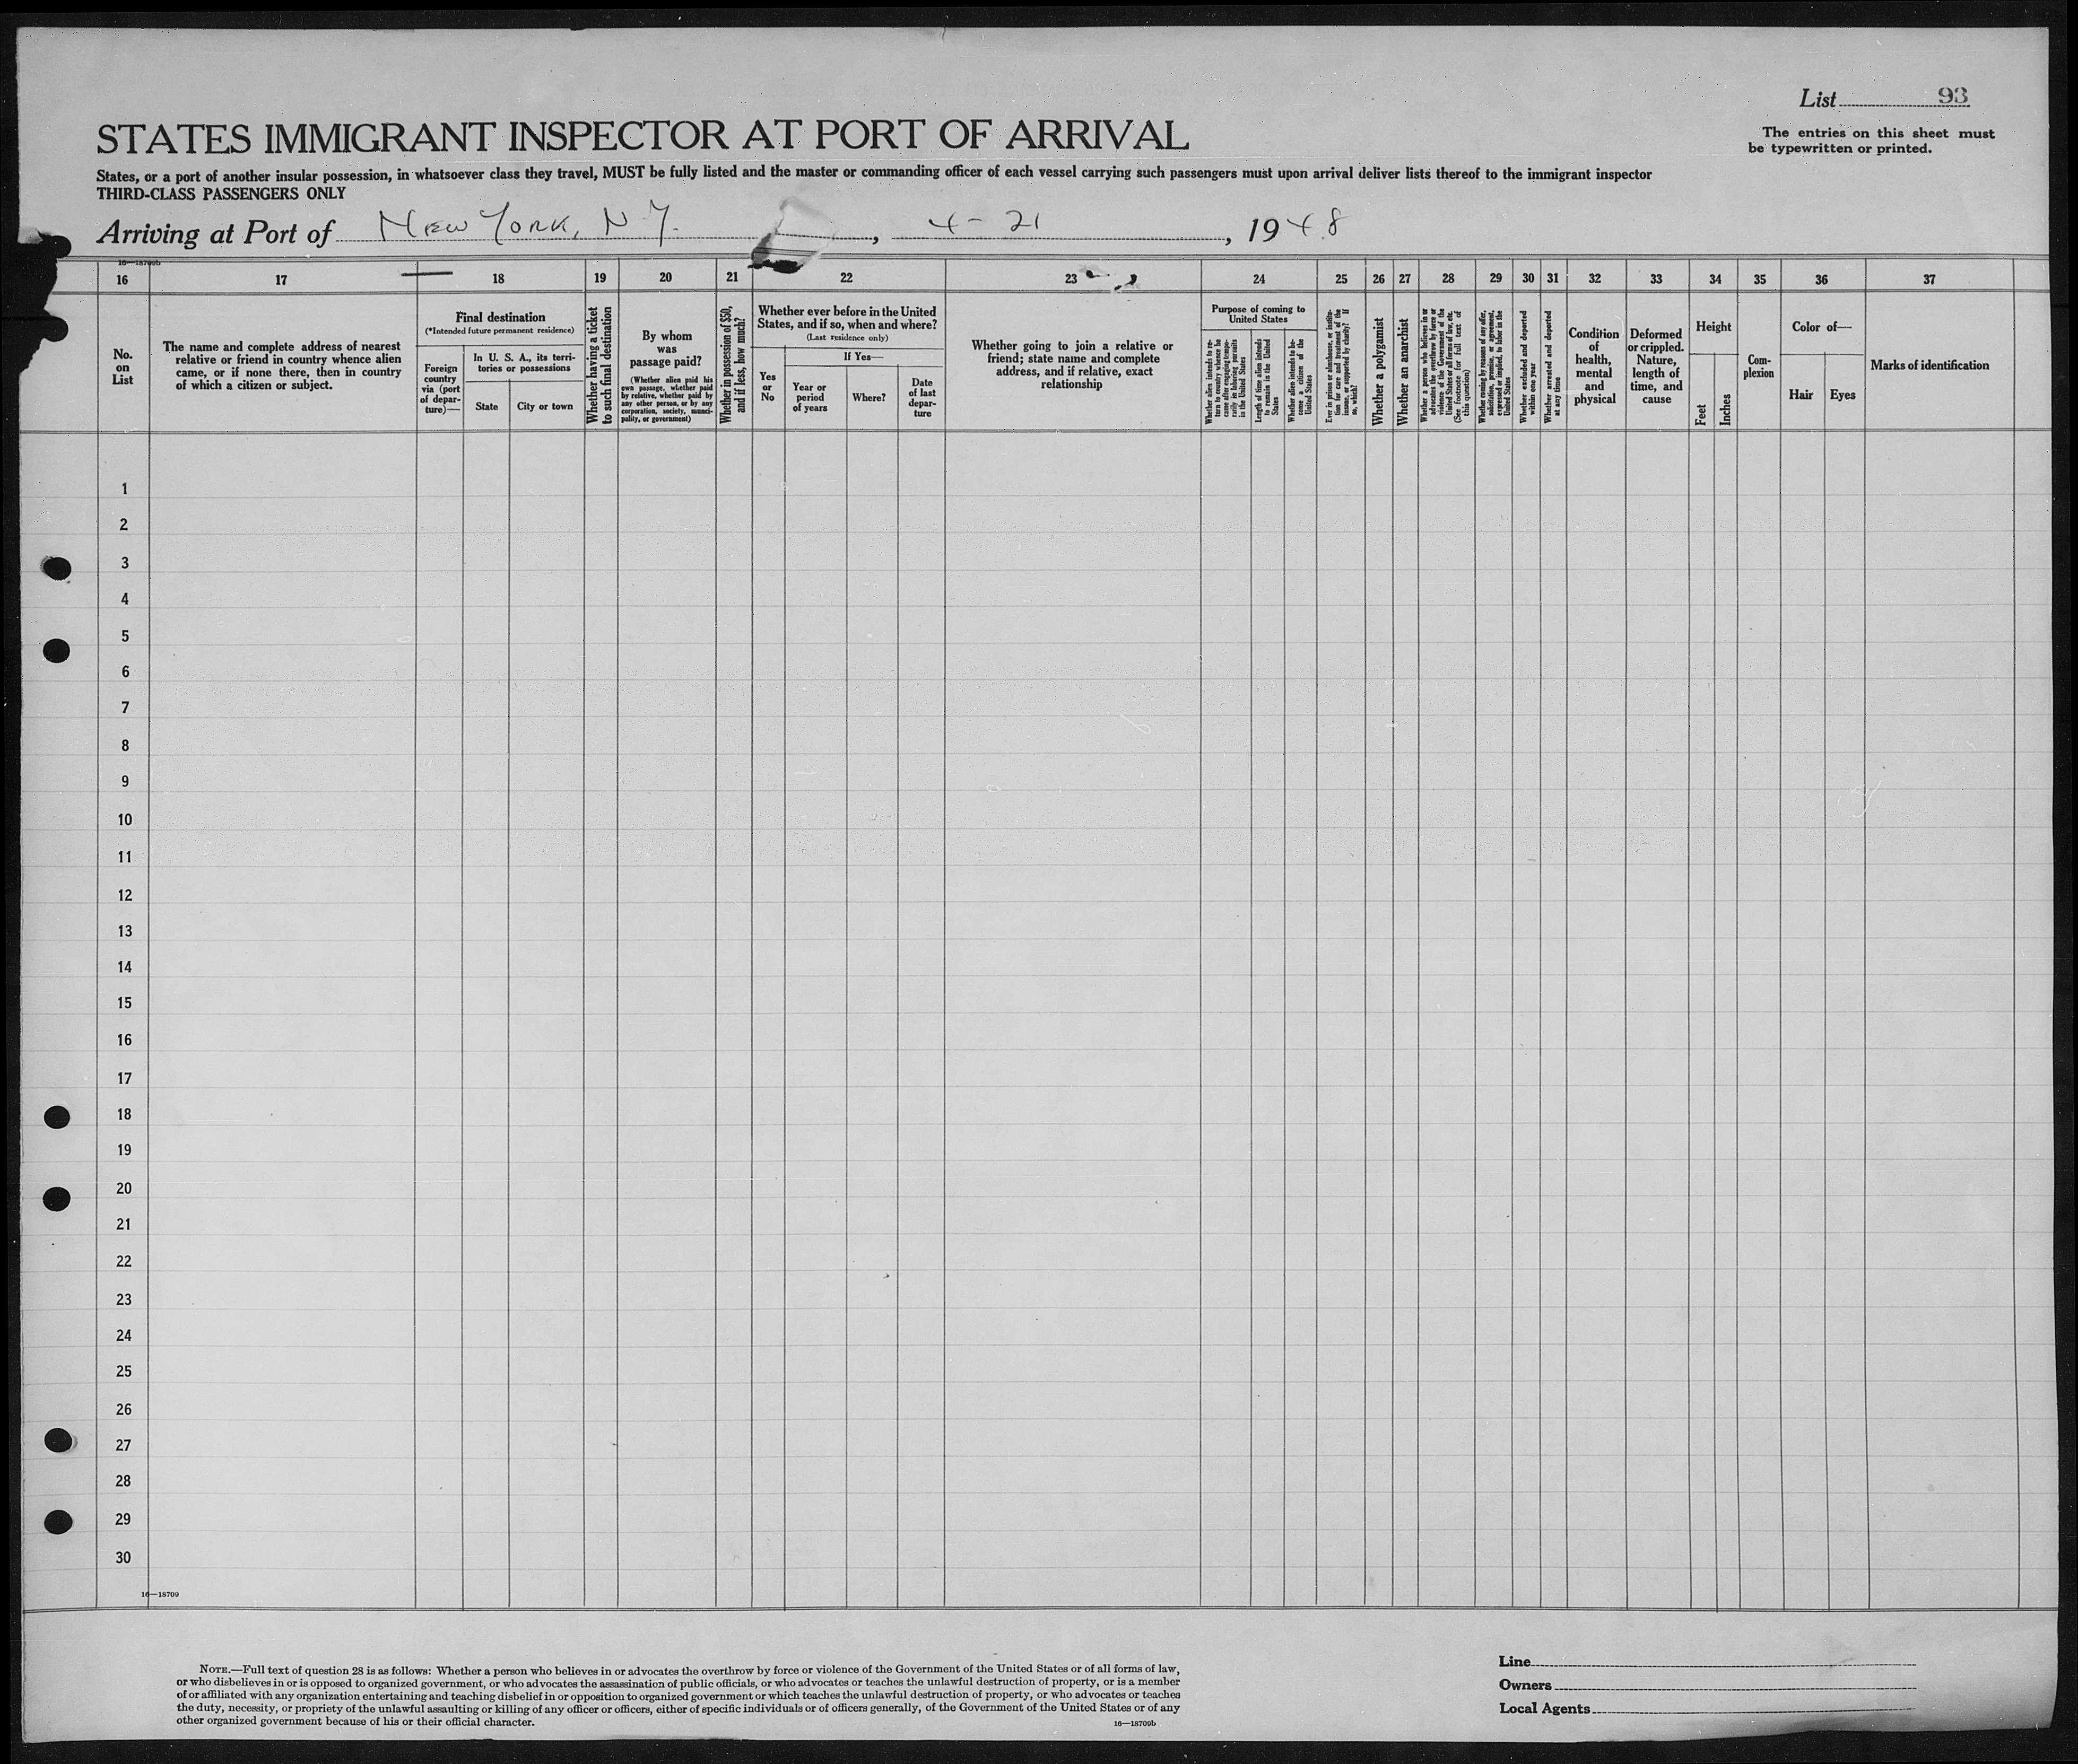 List 93
The entries on this sheet must
be typewritten or printed.
STATES IMMIGRANT INSPECTOR AT PORT OF ARRIVAL
States, or a port of another insular possession, in whatsoever class they travel, MUST be fully listed and the master or commanding officer of each vessel carrying such passengers must upon arrival deliver lists thereof to the immigrant inspector
THIRD-CLASS PASSENGERS ONLY
Arriving at Port of New York, N.Y. , 4-21 , 1948
16—18709b
16 17 18 19 20 21 22 23 24 25 26 27 28 29 30 31 32 33 34 35 36 37
No.
on
List
The name and complete address of nearest
relative or friend in country whence alien
came, or if none there, then in country
of which a citizen or subject.
Final destination
(*Intended future permanent residence)
Foreign
country
via (port
of depar-
ture)—
In U. S. A., its terri-
tories or possessions
State
City or town
Whether having a ticket
to such final destination
By whom
was
passage paid?
(Whether alien paid his
own passage, whether paid
by relative, whether paid by
any other person, or by any
corporation, society, munici-
pality, or government)
Whether in possession of $50,
and if less, how much?
Whether ever before in the United
States, and if so, when and where?
(Last residence only)
Yes
or
No
If Yes—
Year or
period
of years
Where?
Date
of last
depar-
ture
Whether going to join a relative or
friend; state name and complete
address, and if relative, exact
relationship
Purpose of coming to
United States
Whether alien intends to re-
turn to country whence he
came after engaging tempo-
rarily in laboring pursuits
in the United States
Length of time alien intends
to remain in the United
States
Whether alien intends to be-
come a citizen of the
United States
Ever in prison or almshouse, or institu-
tion for care and treatment of the
insane, or supported by charity? If
so, which?
Whether a polygamist
Whether an anarchist
Whether a person who believes in or
advocates the overthrow by force or
violence of the Government of the
United States or all forms of law, etc.
(See footnote for full text of
this question)
Whether coming by reasons of any offer,
solicitation, promise, or agreement,
expressed or implied, to labor in the
United States
Whether excluded and deported
within one year
Whether arrested and deported
at any time
Condition
of
health,
mental
and
physical
Deformed
or crippled.
Nature,
length of
time, and
cause
Height
Feet
Inches
Com-
plexion
Color of—
Hair
Eyes
Marks of identification
1
2
3
4
5
6
7
8
9
10
11
12
13
14
15
16
17
18
19
20
21
22
23
24
25
26
27
28
29
30
16—18709
NOTE.—Full text of question 28 is as follows: Whether a person who believes in or advocates the overthrow by force or violence of the Government of the United States or of all forms of law,
or who disbelieves in or is opposed to organized government, or who advocates the assassination of public officials, or who advocates or teaches the unlawful destruction of property, or is a member
of or affiliated with any organization entertaining and teaching disbelief in or opposition to organized government or which teaches the unlawful destruction of property, or who advocates or teaches
the duty, necessity, or propriety of the unlawful assaulting or killing of any officer or officers, either of specific individuals or of officers generally, of the Government of the United States or of any
other organized government because of his or their official character.
16—18709b
Line
Owners
Local Agents